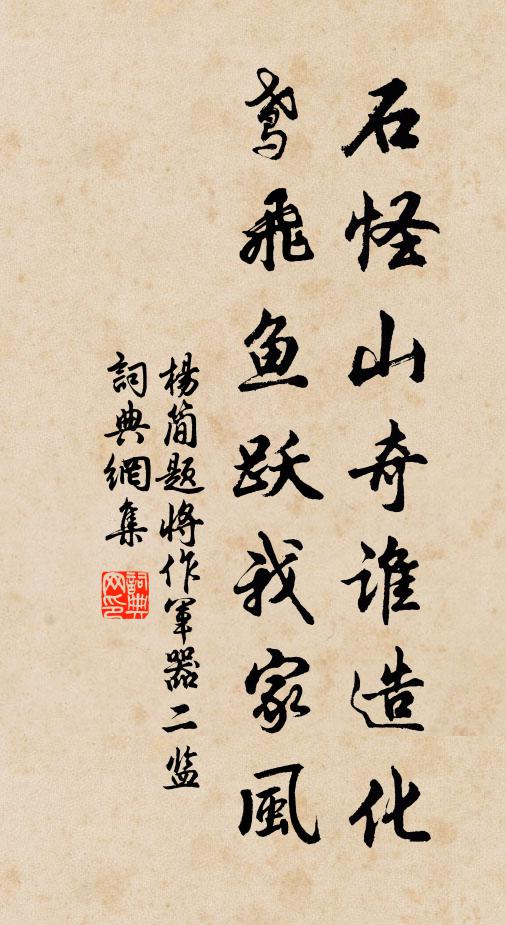 石怪山奇谁造化
鸢飛鱼跃我家風
楊简题将作軍器二监
詞典網集
詞典
网印